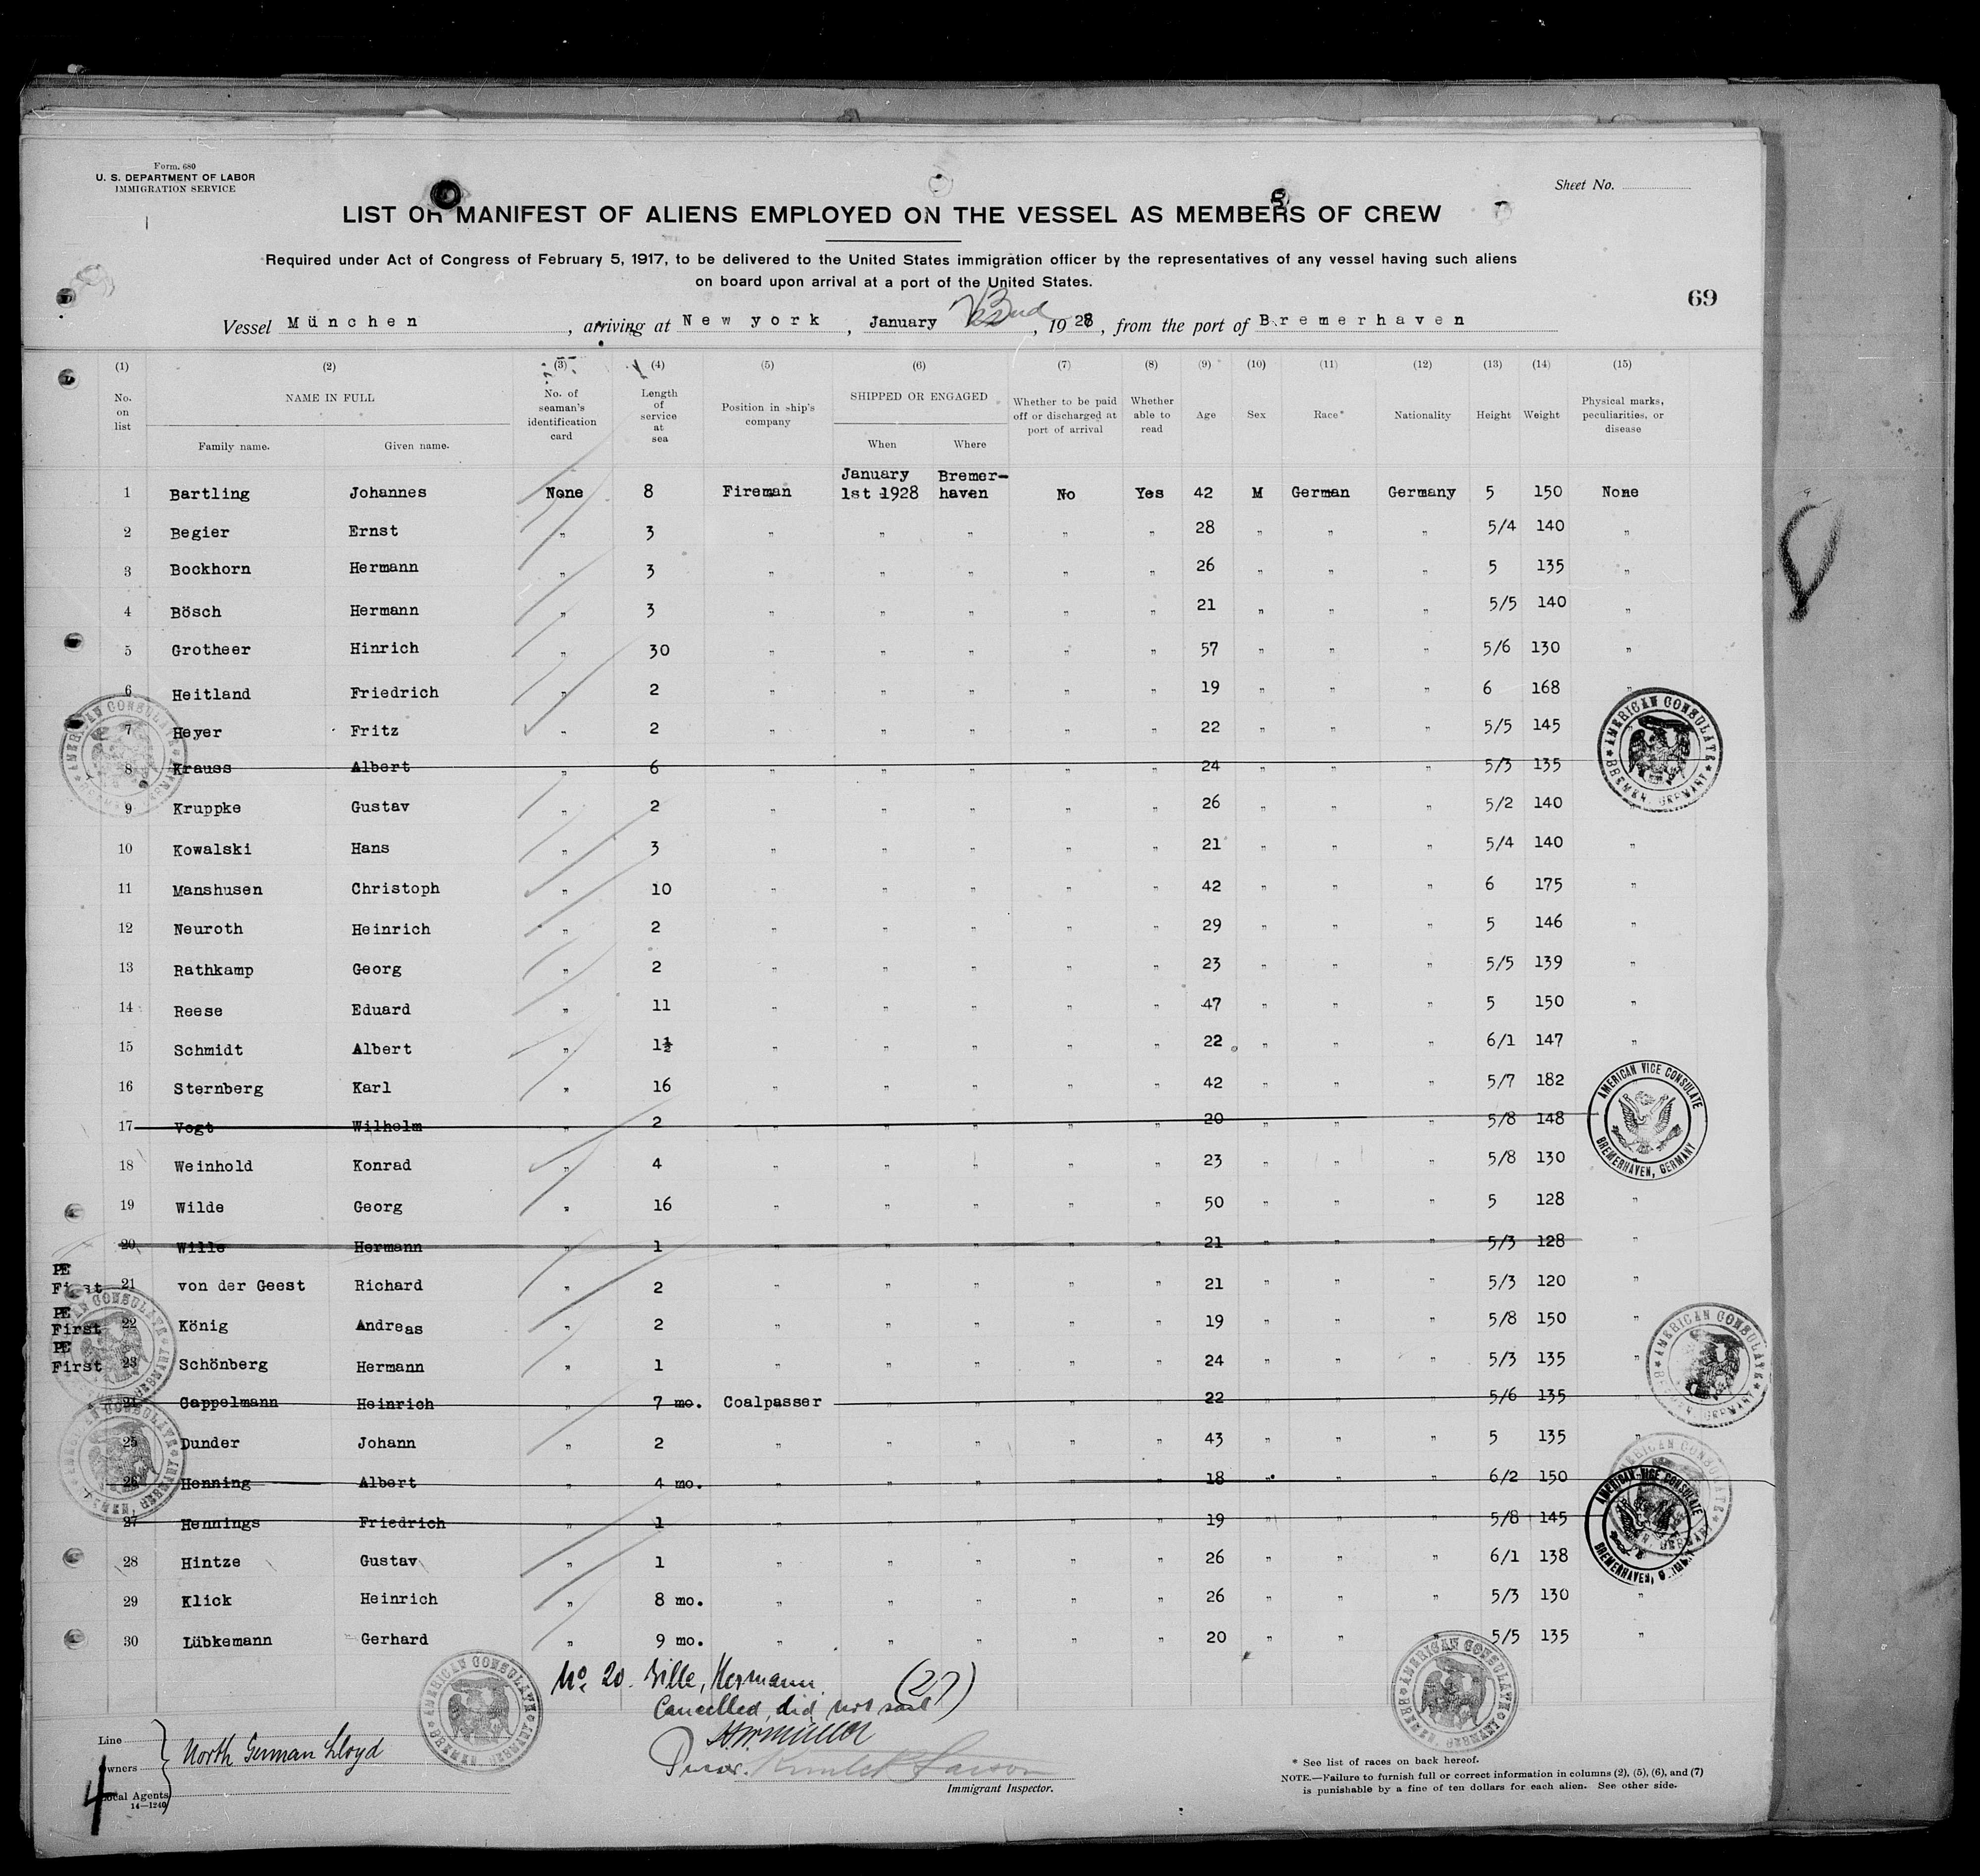 Form. 680
U. S. DEPARTMENT OF LABOR
IMMIGRATION SERVICE
Sheet No.
LIST OR MANIFEST OF ALIENS EMPLOYED ON THE VESSEL AS MEMBERS OF CREW
Required under Act of Congress of February 5, 1917, to be delivered to the United States immigration officer by the representatives of any vessel having such aliens
on board upon arrival at a port of the United States.
69
Vessel München, arriving at New york, January, 1928, from the port of Bremerhaven
(1) (2) (3) (4) (5) (6) (7) (8) (9) (10) (11) (12) (13) (14) (15)
No. on list NAME IN FULL Family name. Given name. No. of seaman's identification card Length of service at sea Position in ship's company SHIPPED OR ENGAGED When Where Whether to be paid off or discharged at port of arrival Whether able to read Age Sex Race* Nationality Height Weight Physical marks, peculiarities, or disease
1 Bartling Johannes None 8 Fireman January 1st 1928 Bremer-haven No Yes 42 M German Germany 5 150 None
2 Begier Ernst " 3 " " " " " 28 " " " 5/4 140 "
3 Bockhorn Hermann " 3 " " " " " 26 " " " 5 135 "
4 Bösch Hermann " 3 " " " " " 21 " " " 5/5 140 "
5 Grotheer Hinrich " 30 " " " " " 57 " " " 5/6 130 "
6 Heitland Friedrich " 2 " " " " " 19 " " " 6 168 "
7 Heyer Fritz " 2 " " " " " 22 " " " 5/5 145
8 Krauss Albert " 6 " " " " " 24 " " " 5/3 135
9 Kruppke Gustav " 2 " " " " " 26 " " " 5/2 140
10 Kowalski Hans " 3 " " " " " 21 " " " 5/4 140 "
11 Manshusen Christoph " 10 " " " " " 42 " " " 6 175 "
12 Neuroth Heinrich " 2 " " " " " 29 " " " 5 146 "
13 Rathkamp Georg " 2 " " " " " 23 " " " 5/5 139 "
14 Reese Eduard " 11 " " " " " 47 " " " 5 150 "
15 Schmidt Albert " 1½ " " " " " 22 " " " 6/1 147 "
16 Sternberg Karl " 16 " " " " " 42 " " " 5/7 182
17 Vogt Wilhelm " 2 " " " " " 20 " " " 5/8 148
18 Weinhold Konrad " 4 " " " " " 23 " " " 5/8 130
19 Wilde Georg " 16 " " " " " 50 " " " 5 128 "
20 Wille Hermann " 1 " " " " " 21 " " " 5/3 128 "
PE First 21 von der Geest Richard " 2 " " " " " 21 " " " 5/3 120 "
PE First 22 König Andreas " 2 " " " " " 19 " " " 5/8 150 "
PE First 23 Schönberg Hermann " 1 " " " " " 24 " " " 5/3 135 "
24 Cappelmann Heinrich " 7 mo. Coalpasser " " " " 22 " " " 5/6 135 "
25 Dunder Johann " 2 " " " " " 43 " " " 5 135 "
26 Henning Albert " 4 mo. " " " " " 18 " " " 6/2 150
27 Hennings Friedrich " 1 " " " " " 19 " " " 5/8 145
28 Hintze Gustav " 1 " " " " " 26 " " " 6/1 138
29 Klick Heinrich " 8 mo. " " " " " 26 " " " 5/3 130 "
30 Lübkemann Gerhard " 9 mo. " " " " " 20 " " " 5/5 135 "
AMERICAN CONSULATE BREMEN, GERMANY
AMERICAN VICE CONSULATE
BREMERHAVEN, GERMANY
No. 20. Wille, Hermann. (27)
Cancelled, did not sail
Line
Owners
Local Agents
North German Lloyd
14—1240
4
Immigrant Inspector.
* See list of races on back hereof.
NOTE.—Failure to furnish full or correct information in columns (2), (5), (6), and (7)
is punishable by a fine of ten dollars for each alien. See other side.